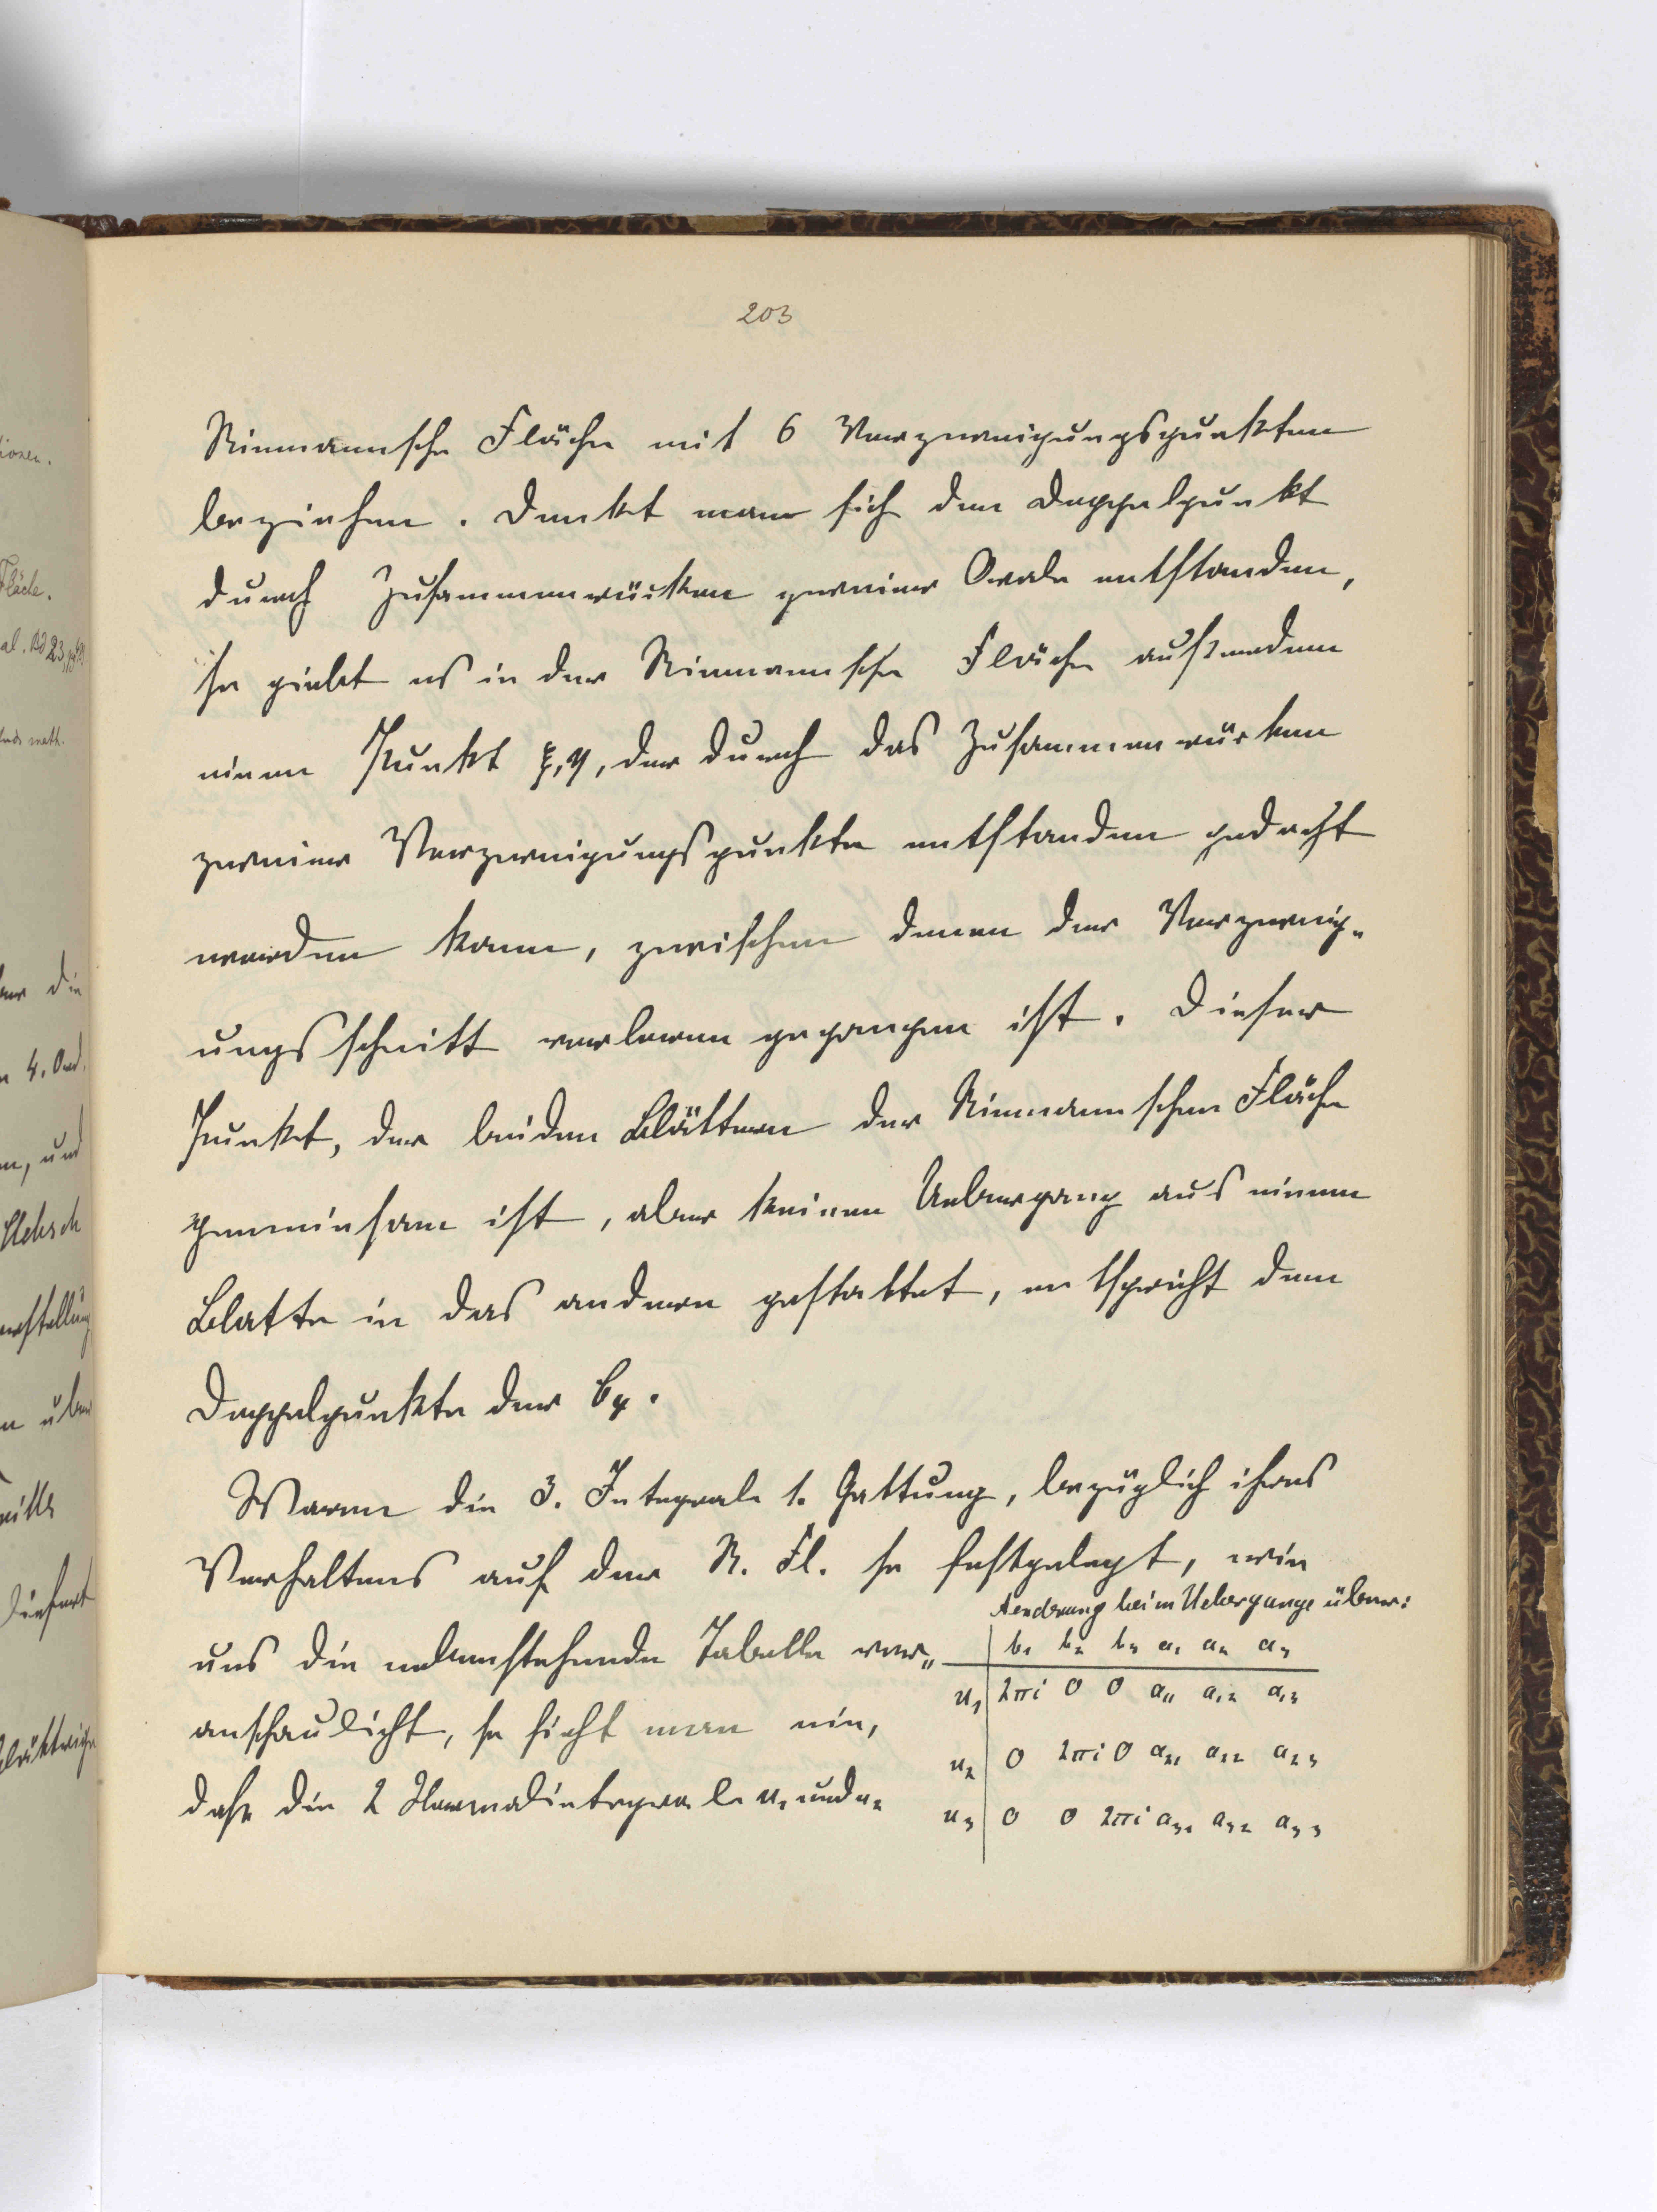 203
Riemannsche Fläche mit 6 Verzweigungspunkten
beziehen. Denkt man sich den Doppelpunkt
durch Zusammenrücken zweier Ovale entstanden,
so giebt es in der Riemannschen Fläche außerdem
einen Punkt ξ, η, der durch das Zusammenrücken
zweier Verzweigungspunkte entstanden gedacht
werden kann, zwischen denen der Verzweig-
ungsschnitt verloren gegangen ist. Dieser
Punkt, der beiden Blättern der Riemannschen Fläche
gemeinsam ist, aber keinen Uebergang aus einem
Blatte in das andere gestattet, entspricht dem
Doppelpunkte der C₄.
Waren die 3. Integrale 1. Gattung, bezüglich ihres
Verhaltens auf der R. Fl. so festgelegt, wie
uns die nebenstehende Tabelle ver-
anschaulicht, so sieht man ein,
daß die 2 Normalintegrale u₁ und u₂
Aenderung beim Uebergange über:
b₁ b₂ b₃ a₁ a₂ a₃
u₁ 2πi 0 0 a₁₁ a₁₂ a₁₃
u₂ 0 2πi 0 a₂₁ a₂₂ a₂₃
u₃ 0 0 2πi a₃₁ a₃₂ a₃₃